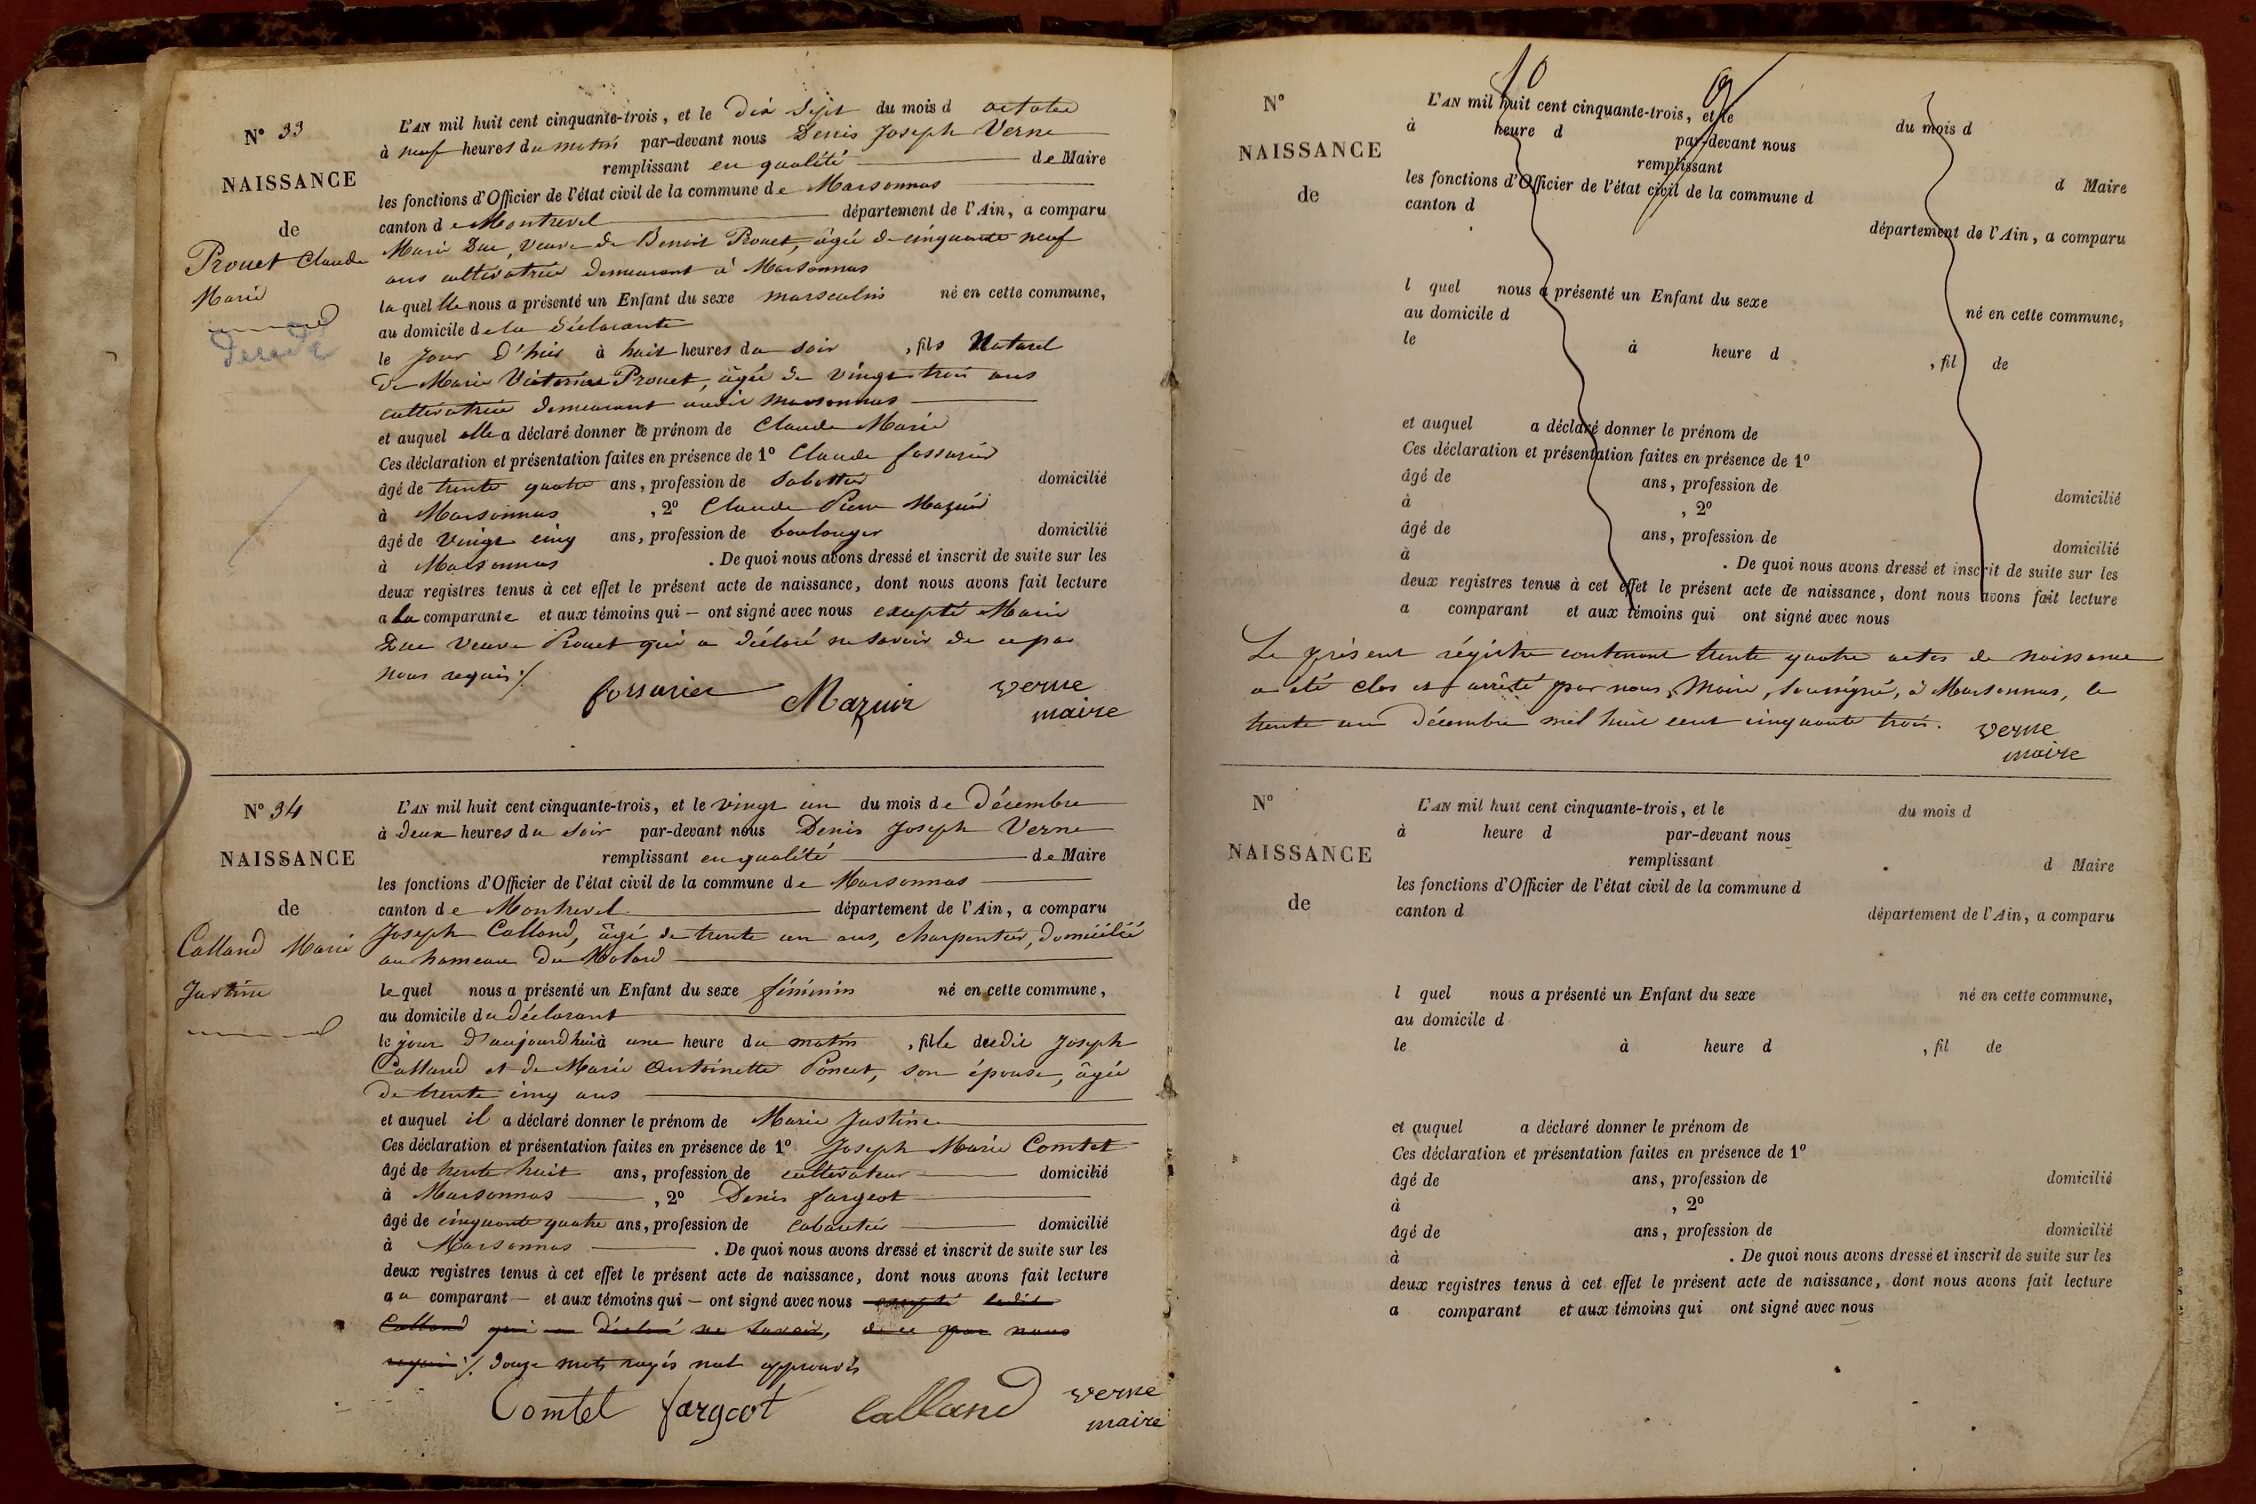 N° 33
NAISSANCE
de
Prouet Claude
Marie
L'AN mil huit cent cinquante-trois, et le dix sept du mois d octobre
à neuf heures du matin par-devant nous Denis Joseph Verne
remplissant en qualité de Maire
les fonctions d'Officier de l'état civil de la commune de Marsonnas
canton de Montrevel département de l'Ain, a comparu
Marie Duc, veuve de Benoit Prouet, âgée de cinquante neuf
ans cultivatrice demeurant à Marsonnas
laquelle nous a présenté un Enfant du sexe masculin né en cette commune,
au domicile de la déclarante
le jour d'hier à huit heures du soir , fils Naturel
de Marie Victorine Prouet, âgée de vingt trois ans
cultivatrice demeurant audit Marsonnas
et auquel elle a déclaré donner le prénom de Claude Marie
Ces déclaration et présentation faites en présence de 1° Claude fossurier
âgé de trente quatre ans, profession de Sabottier domicilié
à Marsonnas , 2° Claude Pierre Mazuir
âgé de vingt cinq ans, profession de boulanger domicilié
à Marsonnas . De quoi nous avons dressé et inscrit de suite sur les
deux registres tenus à cet effet le présent acte de naissance, dont nous avons fait lecture
a la comparante et aux témoins qui – ont signé avec nous excepté Marie
Duc veuve Prouet qui a déclaré ne savoir de ce par
nous requis ./.
fossurier Mazuir verne
maire
N° 34
NAISSANCE
de
Calland Marie
Justine
L'AN mil huit cent cinquante-trois, et le vingt un du mois de Décembre
à deux heures du soir par-devant nous Denis Joseph Verne
remplissant en qualité de Maire
les fonctions d'Officier de l'état civil de la commune de Marsonnas
canton de Montrevel département de l'Ain, a comparu
Joseph Calland, âgé de trente un ans, charpentier, domicilié
au hameau du Molard
lequel nous a présenté un Enfant du sexe féminin né en cette commune,
au domicile du déclarant
le jour d'aujourd'hui à une heure du matin , fille dudit Joseph
Calland et de Marie Antoinette Poncet, son épouse, âgée
de trente cinq ans
et auquel il a déclaré donner le prénom de Marie Justine
Ces déclaration et présentation faites en présence de 1° Joseph Marie Comtet
âgé de trente huit ans, profession de cultivateur domicilié
à Marsonnas , 2° Denis fargeot
âgé de cinquante quatre ans, profession de cabaretier domicilié
à Marsonnas . De quoi nous avons dressé et inscrit de suite sur les
deux registres tenus à cet effet le présent acte de naissance, dont nous avons fait lecture
au comparant – et aux témoins qui – ont signé avec nous excepté ledit
Calland qui a déclaré ne savoir, de ce par nous
requis ./. douze mots rayés nul approuvés
Comtet fargeot Calland verne
maire
N°
NAISSANCE
de
L'AN mil huit cent cinquante-trois, et le du mois d
à heure d par-devant nous
remplissant d Maire
les fonctions d'Officier de l'état civil de la commune d
canton d département de l'Ain, a comparu
l quel nous a présenté un Enfant du sexe né en cette commune,
au domicile d
le à heure d , fil de
et auquel a déclaré donner le prénom de
Ces déclaration et présentation faites en présence de 1°
âgé de ans, profession de domicilié
à , 2°
âgé de ans, profession de domicilié
à . De quoi nous avons dressé et inscrit de suite sur les
deux registres tenus à cet effet le présent acte de naissance, dont nous avons fait lecture
a comparant et aux témoins qui ont signé avec nous
Le présent régistre contenant trente quatre actes de naissance
a été clos et arrêté par nous, Maire, soussigné, à Marsonnas, le
trente un Décembre mil huit cent cinquante trois. verne
maire
N°
NAISSANCE
de
L'AN mil huit cent cinquante-trois, et le du mois d
à heure d par-devant nous
remplissant d Maire
les fonctions d'Officier de l'état civil de la commune d
canton d département de l'Ain, a comparu
l quel nous a présenté un Enfant du sexe né en cette commune,
au domicile d
le à heure d , fil de
et auquel a déclaré donner le prénom de
Ces déclaration et présentation faites en présence de 1°
âgé de ans, profession de domicilié
à , 2°
âgé de ans, profession de domicilié
à . De quoi nous avons dressé et inscrit de suite sur les
deux registres tenus à cet effet le présent acte de naissance, dont nous avons fait lecture
a comparant et aux témoins qui ont signé avec nous